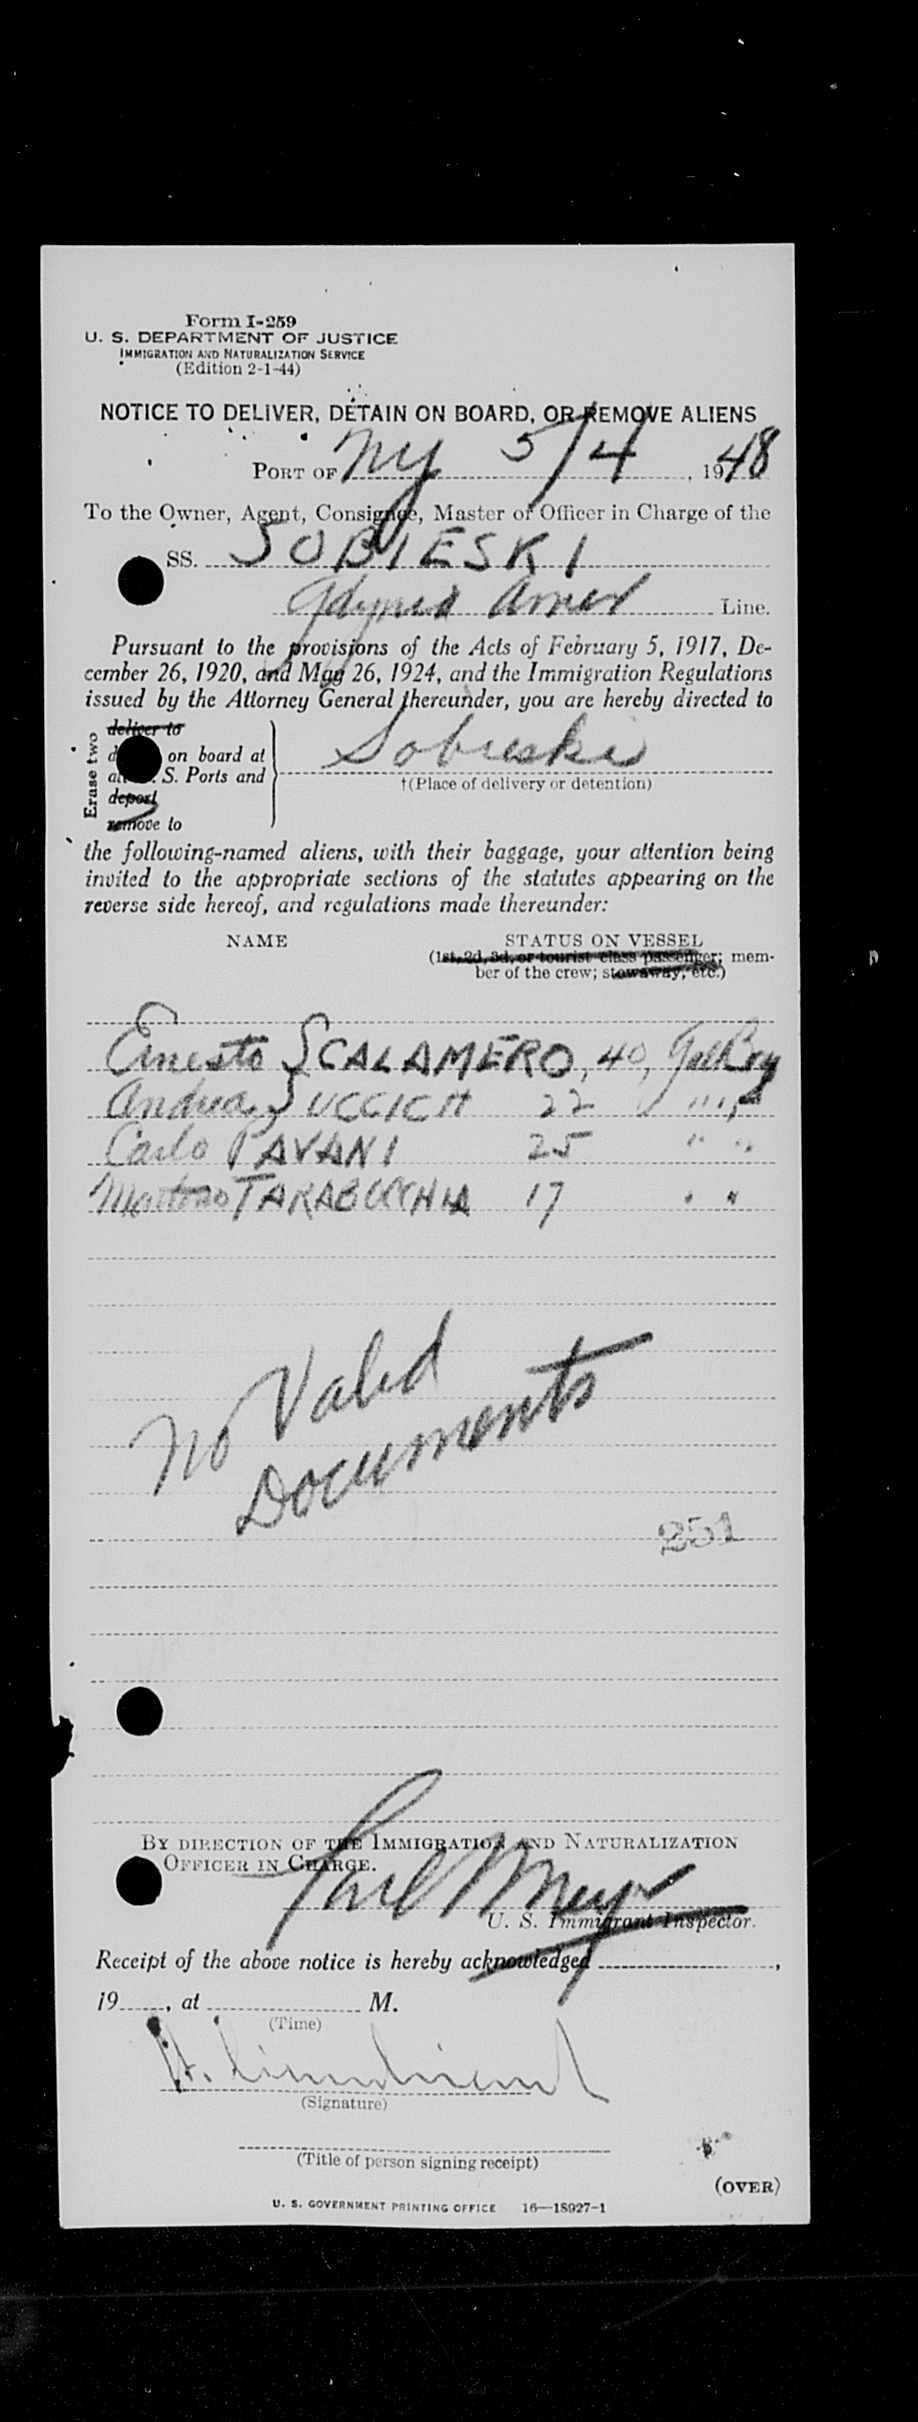 Form I-259
U. S. DEPARTMENT OF JUSTICE
IMMIGRATION AND NATURALIZATION SERVICE
(Edition 2-1-44)
NOTICE TO DELIVER, DETAIN ON BOARD, OR REMOVE ALIENS
PORT OF NY 5/4, 1948
To the Owner, Agent, Consignee, Master or Officer in Charge of the
SS. SOBIESKI
Gdynia Amer Line.
Pursuant to the provisions of the Acts of February 5, 1917, De-
cember 26, 1920, and May 26, 1924, and the Immigration Regulations
issued by the Attorney General thereunder, you are hereby directed to
Erase two
deliver to
on board at
S. Ports and
deport
remove to
Sobieski
†(Place of delivery or detention)
the following-named aliens, with their baggage, your attention being
invited to the appropriate sections of the statutes appearing on the
reverse side hereof, and regulations made thereunder:
NAME STATUS ON VESSEL
(1st, 2d, 3d, or tourist class passenger; mem-
ber of the crew; stowaway, etc.)
Ernesto SCALAMERO, 40,
Andrea SUCCICH 22 " "
Carlo PAVANI 25 " "
TARABOCCHIA 17 " "
No Valid
Documents
251
BY DIRECTION OF THE IMMIGRATION AND NATURALIZATION
OFFICER IN CHARGE.
U. S. Immigrant Inspector.
Receipt of the above notice is hereby acknowledged ,
19 , at M.
(Time)
(Signature)
(Title of person signing receipt)
(OVER)
U. S. GOVERNMENT PRINTING OFFICE 16—18927-1